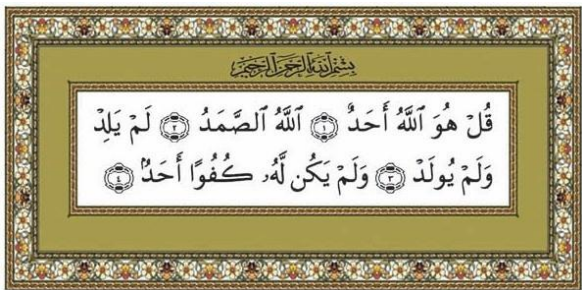 بسم الله الرحمن الرحيم
قُلْ هُوَ ٱللَّهُ أَحَدٌ ۝١ ٱللَّهُ ٱلصَّمَدُ ۝٢ لَمْ يَلِدْ
وَلَمْ يُولَدْ ۝٣ وَلَمْ يَكُن لَّهُۥ كُفُوًا أَحَدٌۢ ۝٤